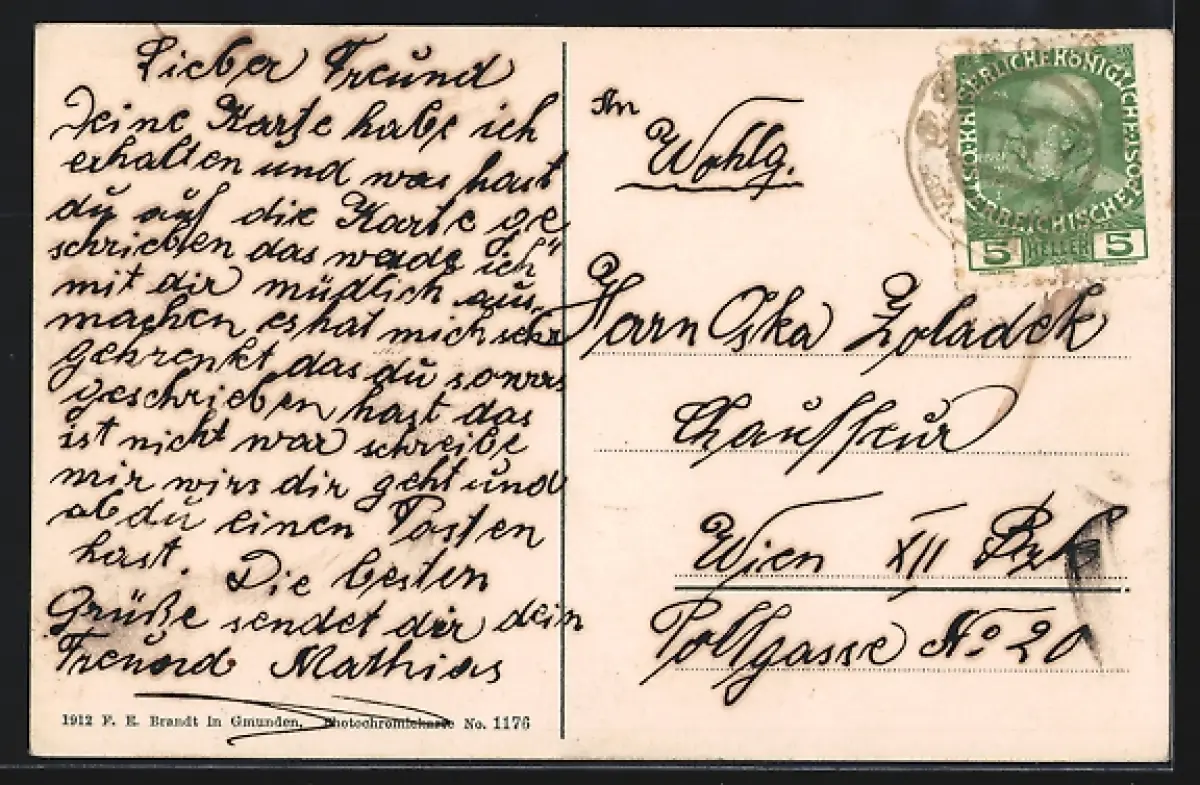 Lieber Freund
Deine Karte habe ich
erhalten und was hast
du auf die Karte ge
schrieben das werde ich
mit dir müdlich aus
machen es hat mich sehr
gekrenkt das du sowas
geschrieben hast das
ist nicht war schreibe
mir wirs dir geht und
ab du einen Posten
hast. Die besten
Grüße sendet dir dein
Freund Mathias
1912 F. E. Brandt in Gmunden. Photochromiekarte No. 1176
An
Wohlg.
Harn Oska Zoladek
Chauffeur
Wien XII Bzk
Poltgasse No 20
KAISERLICHE KÖNIGLICHE ÖSTERREICHISCHE POST
5 HELLER 5